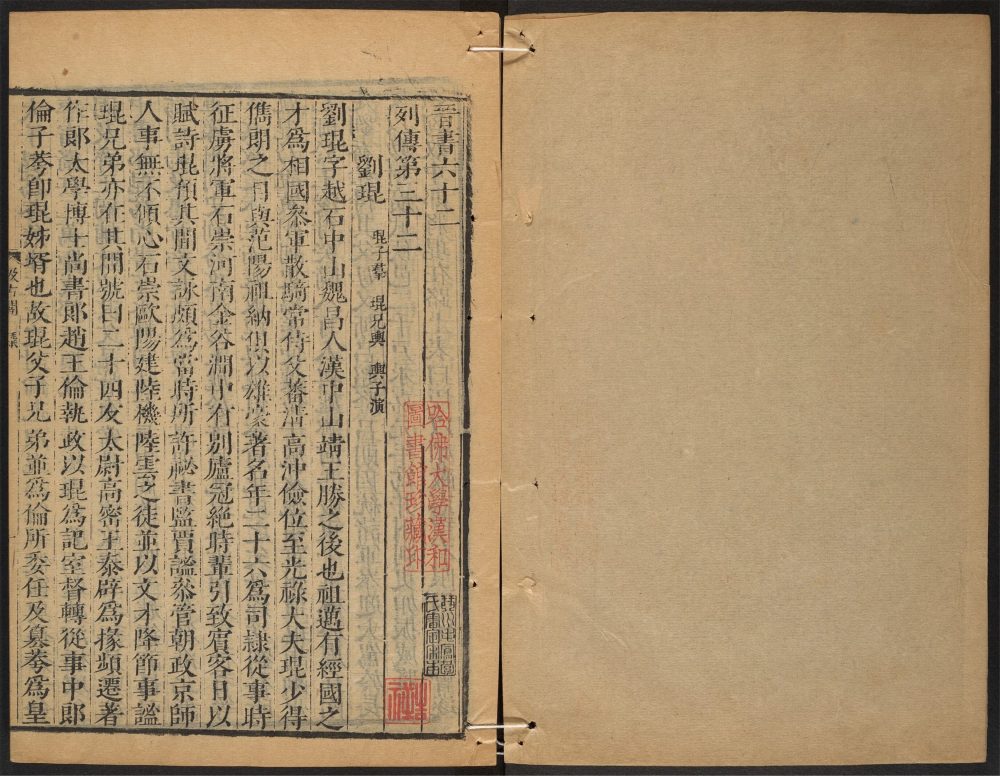 晉書六十二
列傳第三十二
劉琨 琨子羣 琨兄輿 輿子演
劉琨字越石中山魏昌人漢中山靖王勝之後也祖邁有經國之
才爲相國叅軍散騎常侍父蕃清高沖儉位至光祿大夫琨少得
儁朗之目與范陽祖納俱以雄豪著名年二十六爲司隸從事時
征虜將軍石崇河南金谷澗中有別廬冠絶時輩引致賓客日以
賦詩琨預其閒文詠頗爲當時所許祕書監賈謐叅管朝政京師
人事無不傾心石崇歐陽建陸機陸雲之徒並以文才降節事謐
琨兄弟亦在其間號曰二十四友太尉高密王泰辟爲掾頻遷著
作郎太學博士尚書郎趙王倫執政以琨爲記室督轉從事中郎
倫子荂卽琨姊壻也故琨父子兄弟並爲倫所委任及篡荂爲皇
汲古閣
哈佛大學漢和
圖書館珍藏印